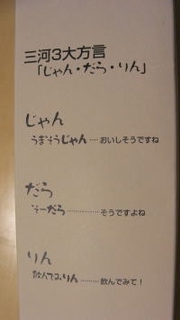 三河3大方言
「じゃん・だら・りん」
じゃん
うまそうじゃん…おいしそうですね
だら
そーだら…………そうですよね
りん
飲んでみりん………飲んでみて！